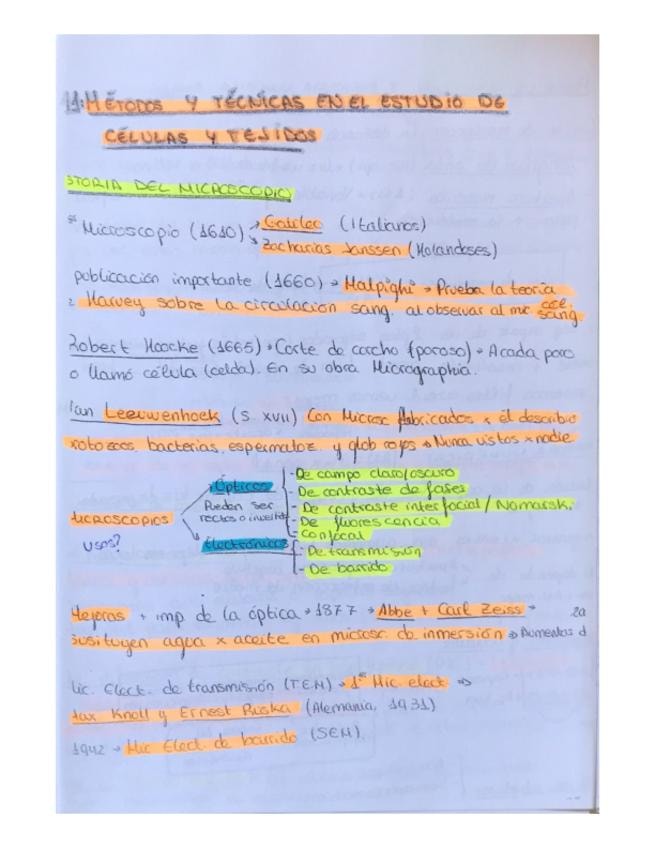 11: MÉTODOS Y TÉCNICAS EN EL ESTUDIO DE
CÉLULAS Y TEJIDOS
STORIA DEL MICROSCOPIO
* Microscopio (1610) → Galileo (Italianos)
→ Zacharias Janssen (Holandeses)
publicación importante (1660) → Malpighi → Prueba la teoría
Harvey sobre la circulación sang. al observar al mic. cel. sang.
Robert Hoocke (1665) → Corte de corcho (poroso) → A cada poro
o llamó célula (celda). En su obra Micrographia.
Van Leeuwenhoek (S. XVII) Con Microsc fabricados x él describio
protozoos, bacterias, espermatoz. y glob rojos → Nunca vistos x nadie
MICROSCOPIOS
usos?
Ópticos
Pueden ser
rectos o invertid
- De campo claro/oscuro
- De contraste de fases
- De contraste interfacial / Nomarski
- De fluorescencia
- confocal
Electrónicos
- De transmisión
- De barrido
Mejoras + imp. de la óptica → 1877 → Abbe + Carl Zeiss →
Susituyen agua x aceite en microsc. de inmersión → Aumentas d
Mic. Elect. de transmisión (TEM) → 1er Mic. elect ⇒
Max Knoll y Ernest Ruska (Alemania, 1931)
1942 → Mic Elect. de barrido (SEM).